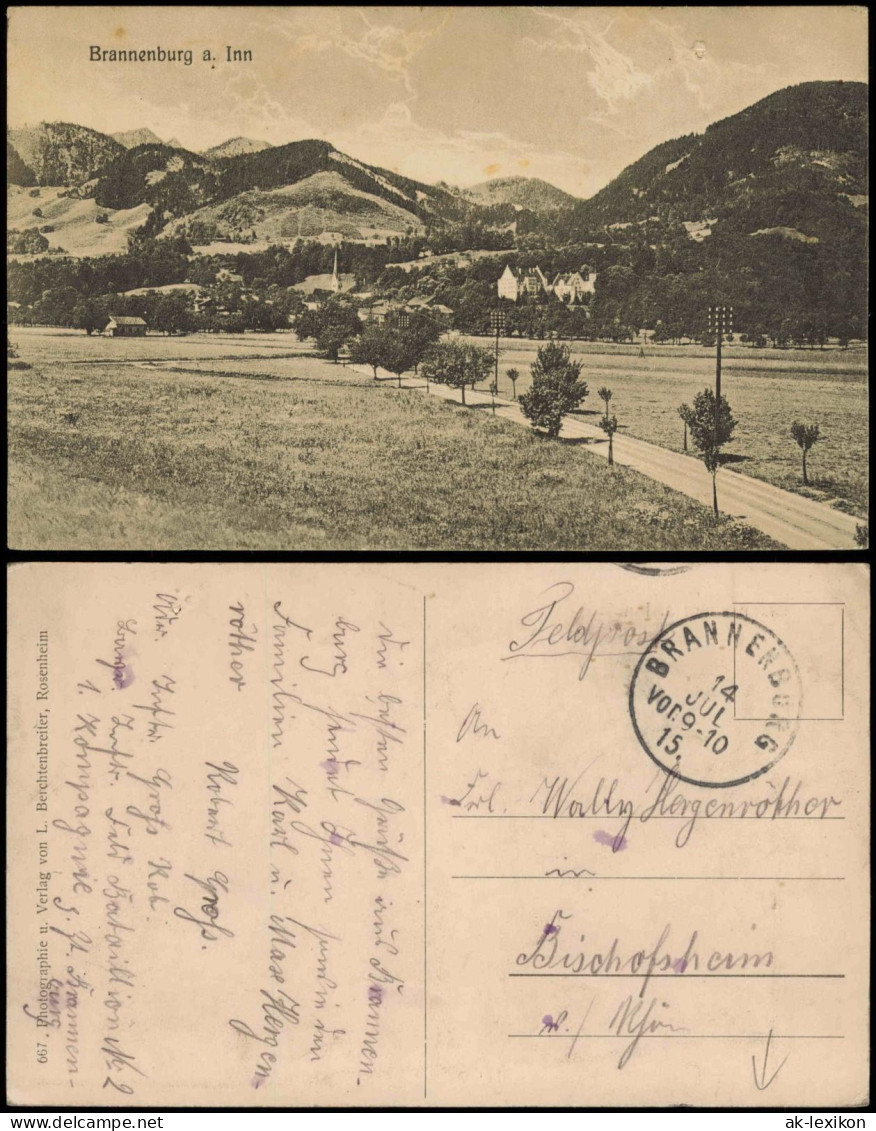 Brannenburg a. Inn
667 Photographie u. Verlag von L. Berchtenbreiter, Rosenheim
Die besten Grüße aus Brannen-
burg sendet Ihnen sowie den
Familien Karl u. Max Hergen-
röther
Robert Groß.
Groß Rob.
Feld Bataillon No 2
1. Kompagnie z. Z. Brannen-
burg
Feldpost
BRANNENBURG
14
JUL
Vor.9-10
15.
An
Frl. Wally Hergenröther
in
Bischofsheim
v./ Rhön
ak-lexikon